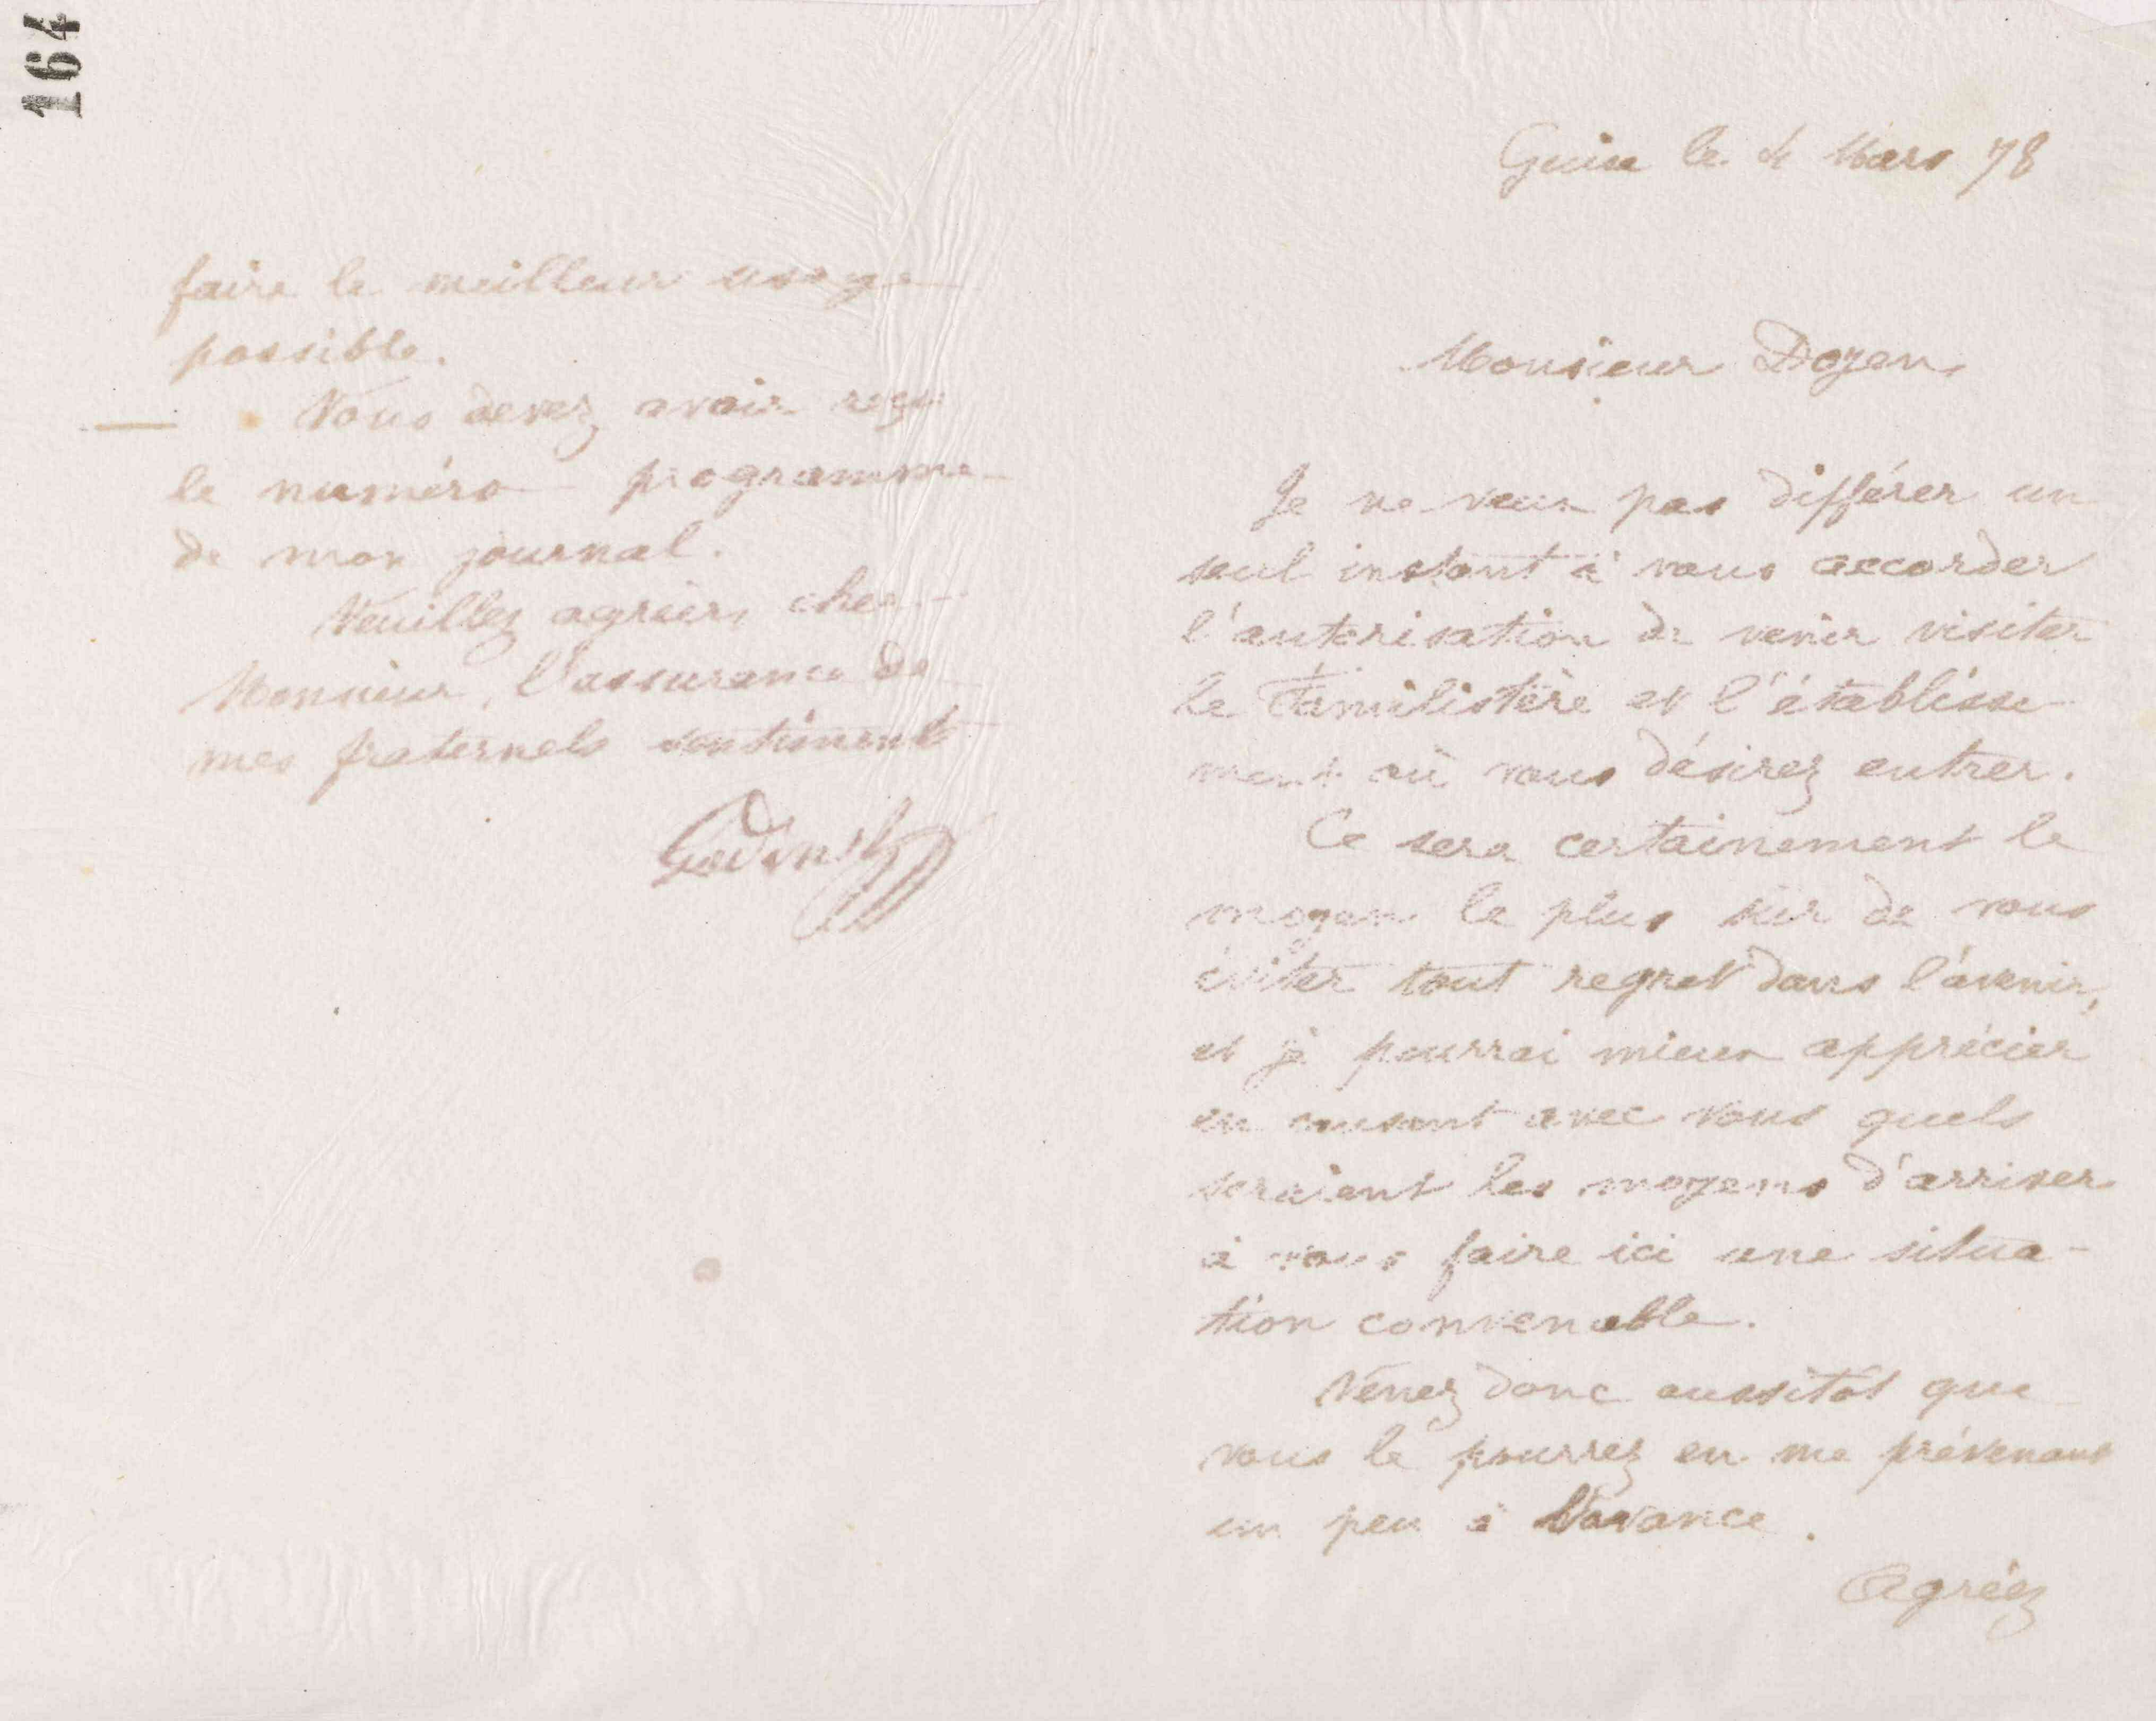 164
faire le meilleur usage
possible.
Vous devez avoir reçu
le numéro programme
de mon journal.
Veuillez agréer, cher
Monsieur, l'assurance de
mes fraternels sentiments
Godin
Guise le 4 Mars 78
Monsieur Doyen,
Je ne veux pas différer un
seul instant à vous accorder
l'autorisation de venir visiter
le Familistère et l'établisse-
ment où vous désirez entrer.
Ce sera certainement le
moyen le plus sûr de vous
éviter tout regret dans l'avenir,
et je pourrai mieux apprécier
en causant avec vous quels
seraient les moyens d'arriver
à vous faire ici une situa-
tion convenable.
Venez donc aussitôt que
vous le pourrez en me prévenant
un peu à l'avance.
Agréez